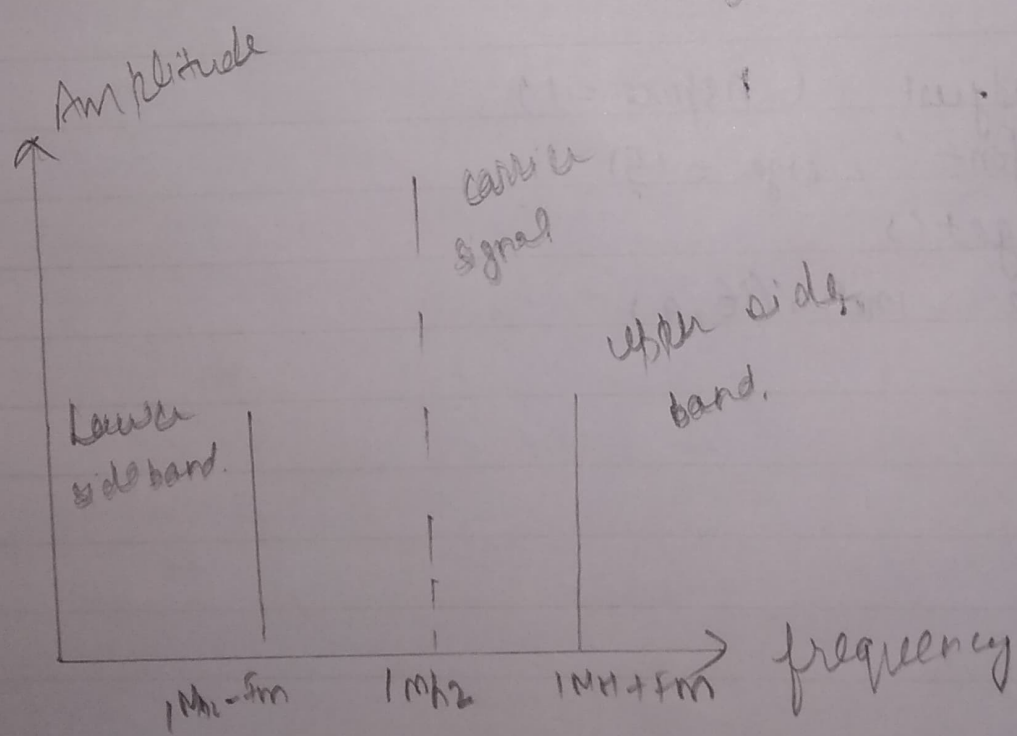 Amplitude
carrier
signal
upper side
band.
Lower
sideband.
1Mhz-Fm
1Mhz
1MH+Fm
frequency